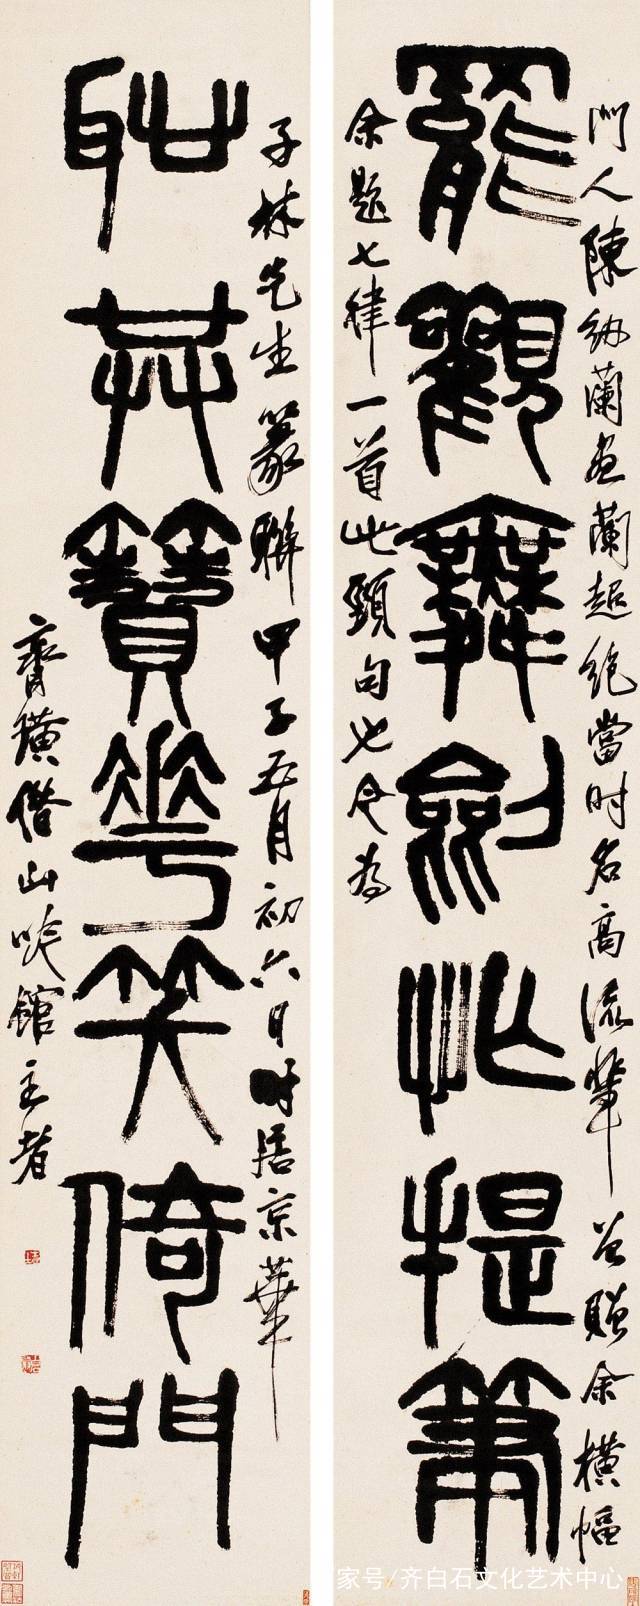 門人陳紉蘭畫蘭超絕當時名高流輩曾贈余橫幅
罷觀舞劍忙提筆
余題七律一首此頸句也今為
子林先生篆聯甲子五月初六日時居京華
恥共簪花笑倚門
齊璜借山吟館主者
家号/齐白石文化艺术中心